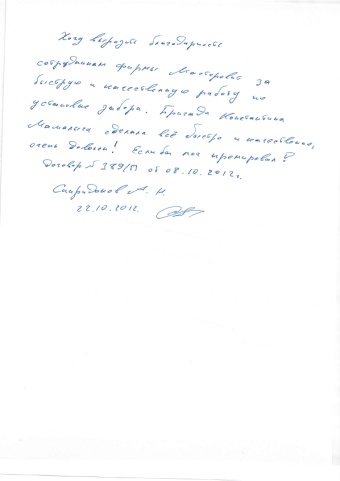 Хочу выразить благодарность
сотрудникам фирмы Мастеровит за
быструю и качественную работу по
установке забора. Бригада Константина
сделала всё быстро и качественно,
очень доволен! Если бы мог премировал!
Договор № 389/П от 08.10.2012г.
Спиридонов А. Н.
22.10.2012.